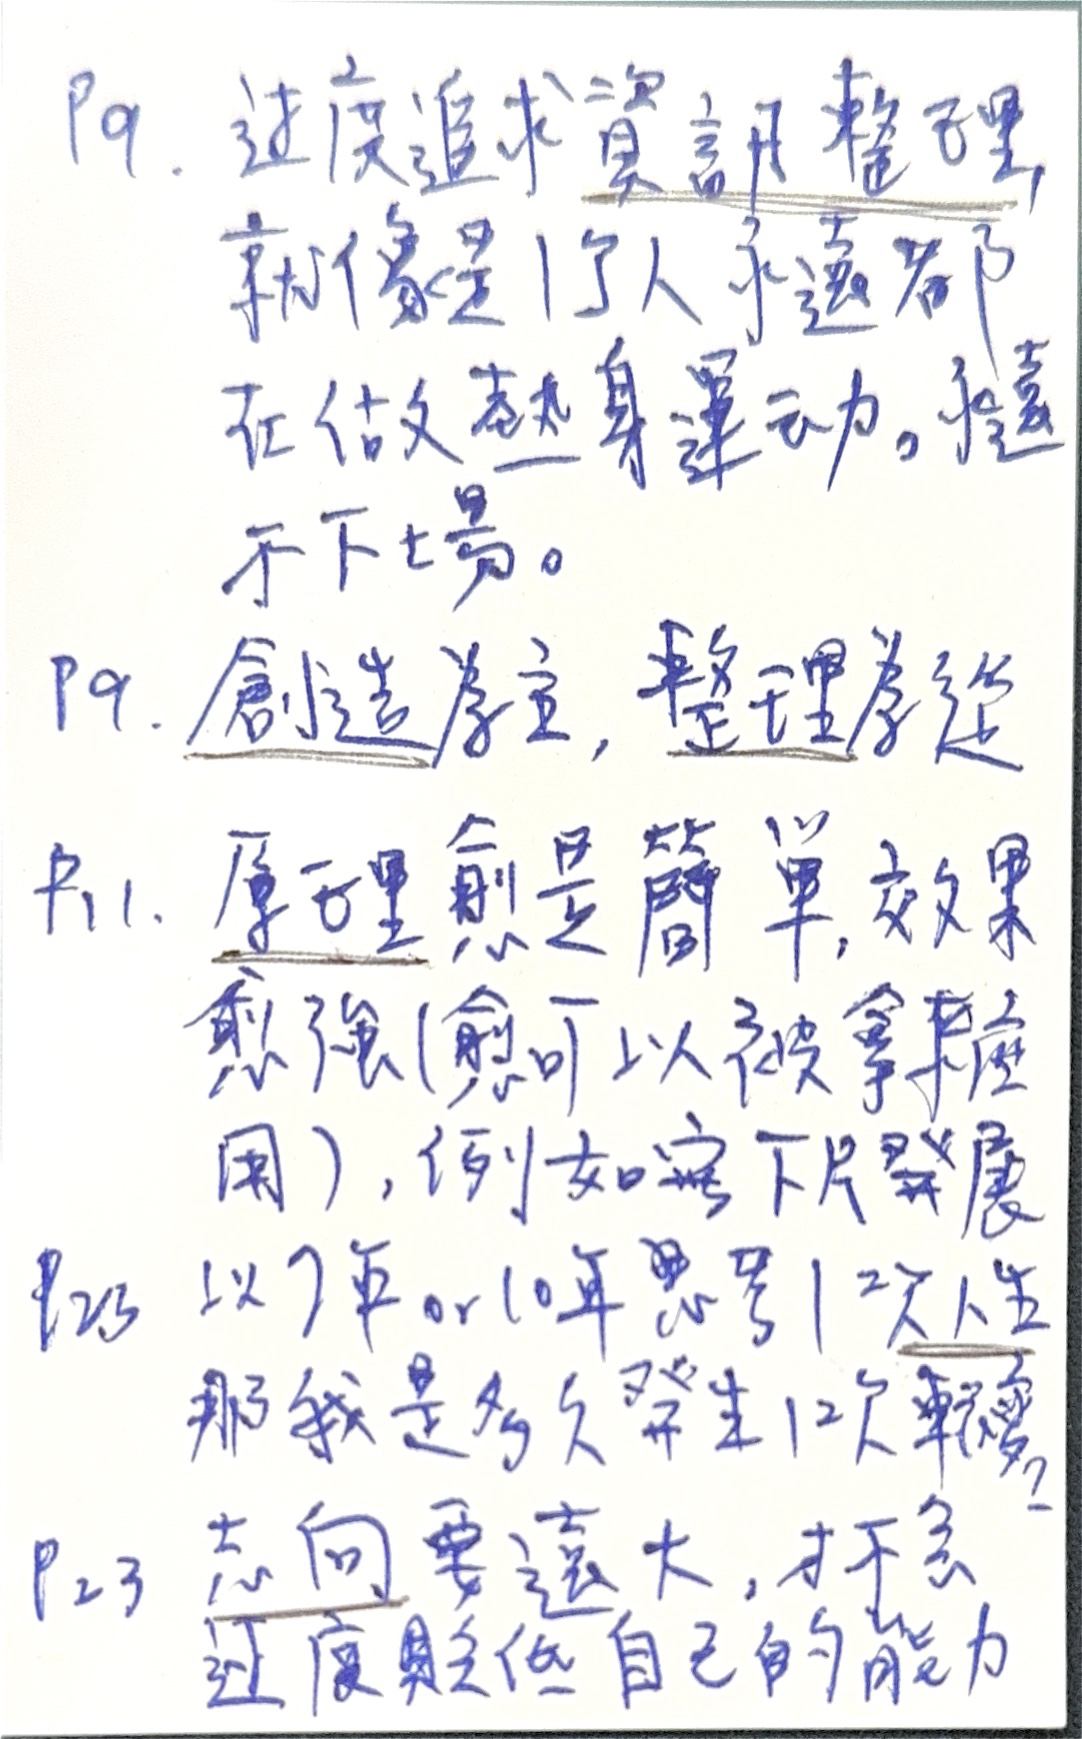 P9. 过度追求資訊整理,
就像是1个人永遠都
在做熱身運动。永遠
不下場。
P9. 創造為主, 整理為從
P11. 原理愈是簡單, 效果
愈強(愈可以被拿來應
用), 例如寫下片發展
P23 以7年or10年思考1次人生
那我是多久發生1次轉變?
P23 志向要遠大, 才不会
过度貶低自己的能力